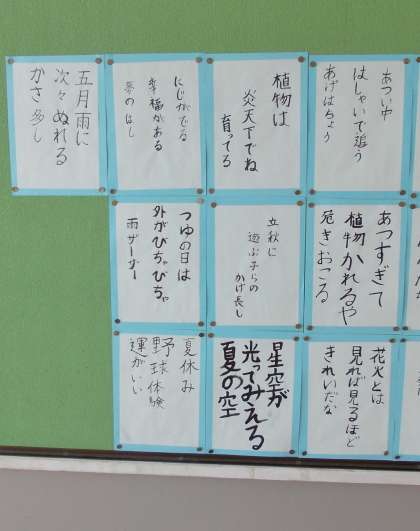 あつい中
はしゃいで追う
あげはちょう
植物は
炎天下でね
育ってる
にじがでる
幸福がある
夢のはし
五月雨に
次々ぬれる
かさ多し
あつすぎて
植物かれるや
危きおこる
立秋に
遊ぶ子らの
かげ長し
つゆの日は
外がびちゃびちゃ
雨ザーザー
花火とは
見れば見るほど
きれいだな
星空が
光ってみえる
夏の空
夏休み
野球体験
運がいい